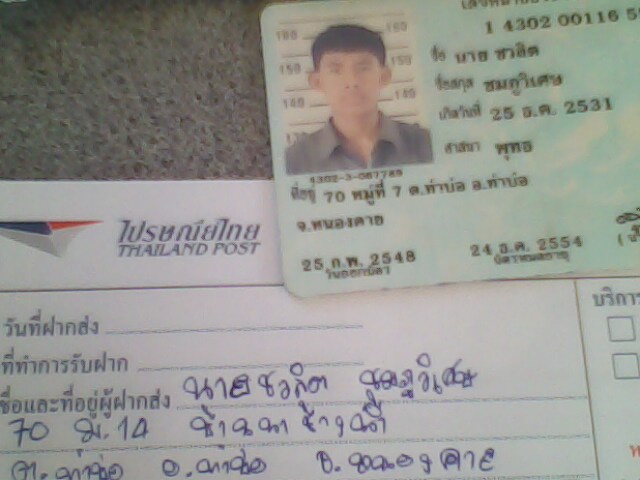 1 4302 00116 5
ชื่อ นาย ชวลิต
ชื่อสกุล ชมภูวิเศษ
เกิดวันที่ 25 ธ.ค. 2531
ศาสนา พุทธ
169 169
159 159
149 149
4302-3-067789
ที่อยู่ 70 หมู่ที่ 7 ต.ท่าบ่อ อ.ท่าบ่อ
จ.หนองคาย
25 ก.พ. 2548
วันออกบัตร
24 ธ.ค. 2554
บัตรหมดอายุ
ไปรษณีย์ไทย
THAILAND POST
บริการ
วันที่ฝากส่ง
ที่ทำการรับฝาก
ชื่อและที่อยู่ผู้ฝากส่ง นายชวลิต ชมภูวิเศษ
70 ม.14 บ้าน
ต.ท่าบ่อ อ.ท่าบ่อ จ.หนองคาย